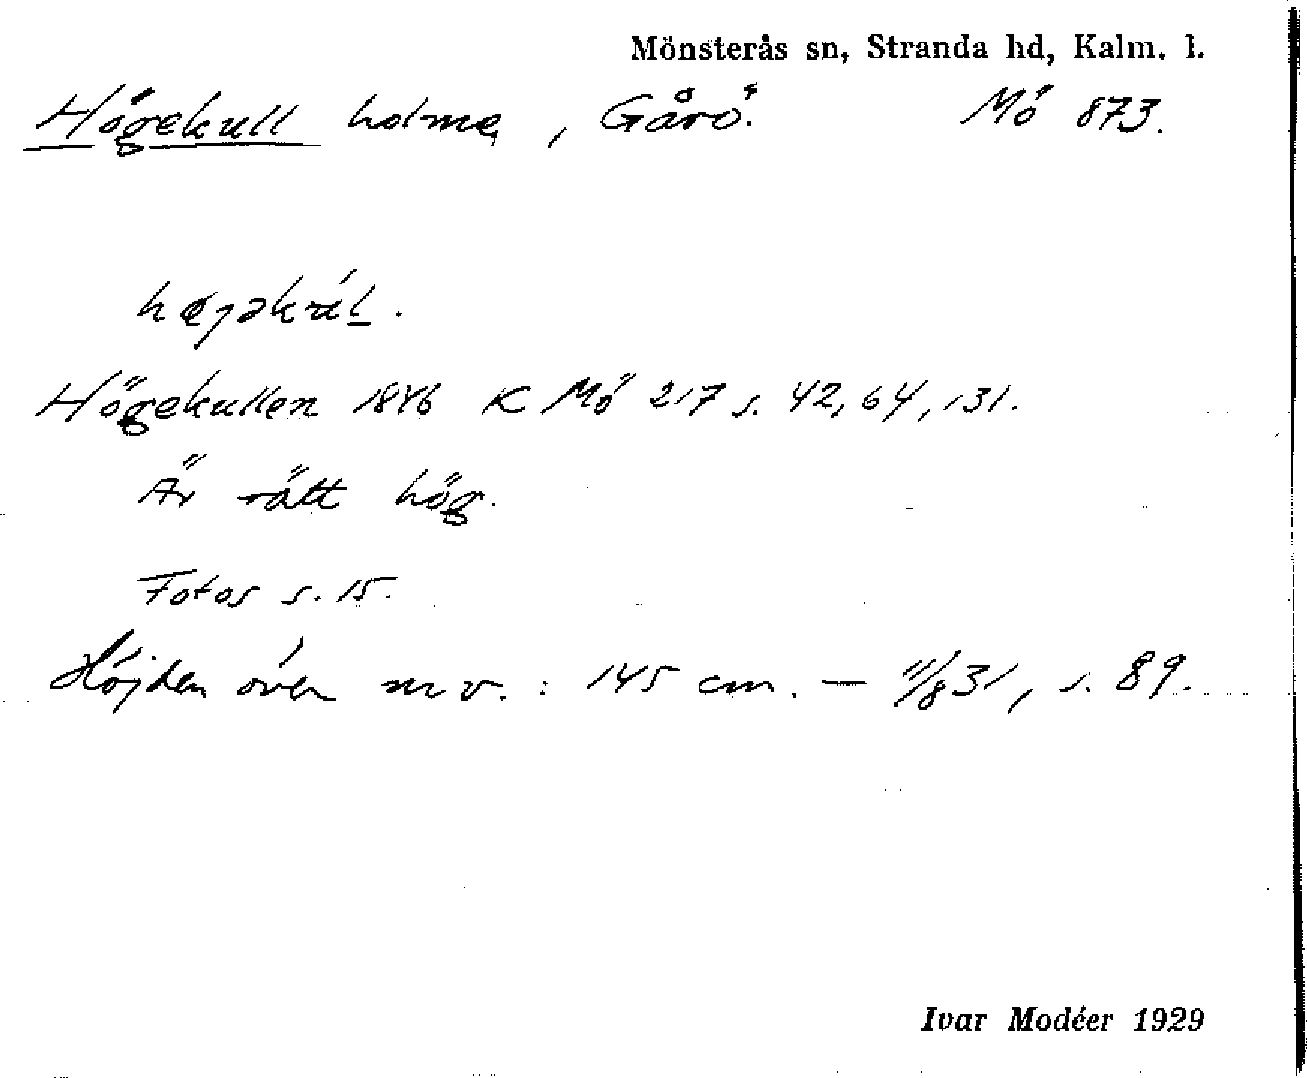 Mönsterås sn, Stranda hd, Kalm. l.
Högekull holme, Gårö. Mö 873.
Högekullen 1846 K Mö 217 s. 42, 64, 131.
Är rätt hög.
Fotos s. 15.
Höjden över m v. : 145 cm. — 11/8 31, s. 89.
Ivar Modéer 1929